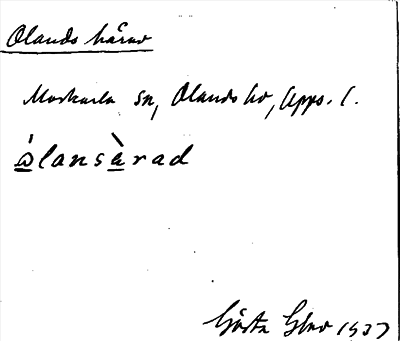 Olands härad
Morkarla sn, Olands hd, Upps. l.
ɷ́lansàrad
Gösta 1937